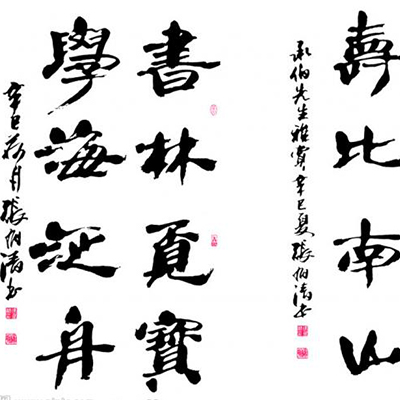 壽比南山
承伯先生雅賞辛巳夏張伯
書林覓寶
學海泛舟
辛巳荷月張伯書